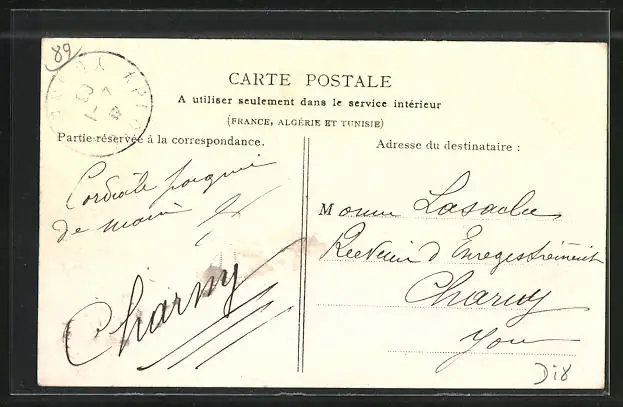 89
CARTE POSTALE
A utiliser seulement dans le service intérieur
(FRANCE, ALGÉRIE ET TUNISIE)
Partie réservée à la correspondance.
Adresse du destinataire :
Cordiale poignée
de main
Charny
M
Receveur d Enregistrement
Charny
Yonne